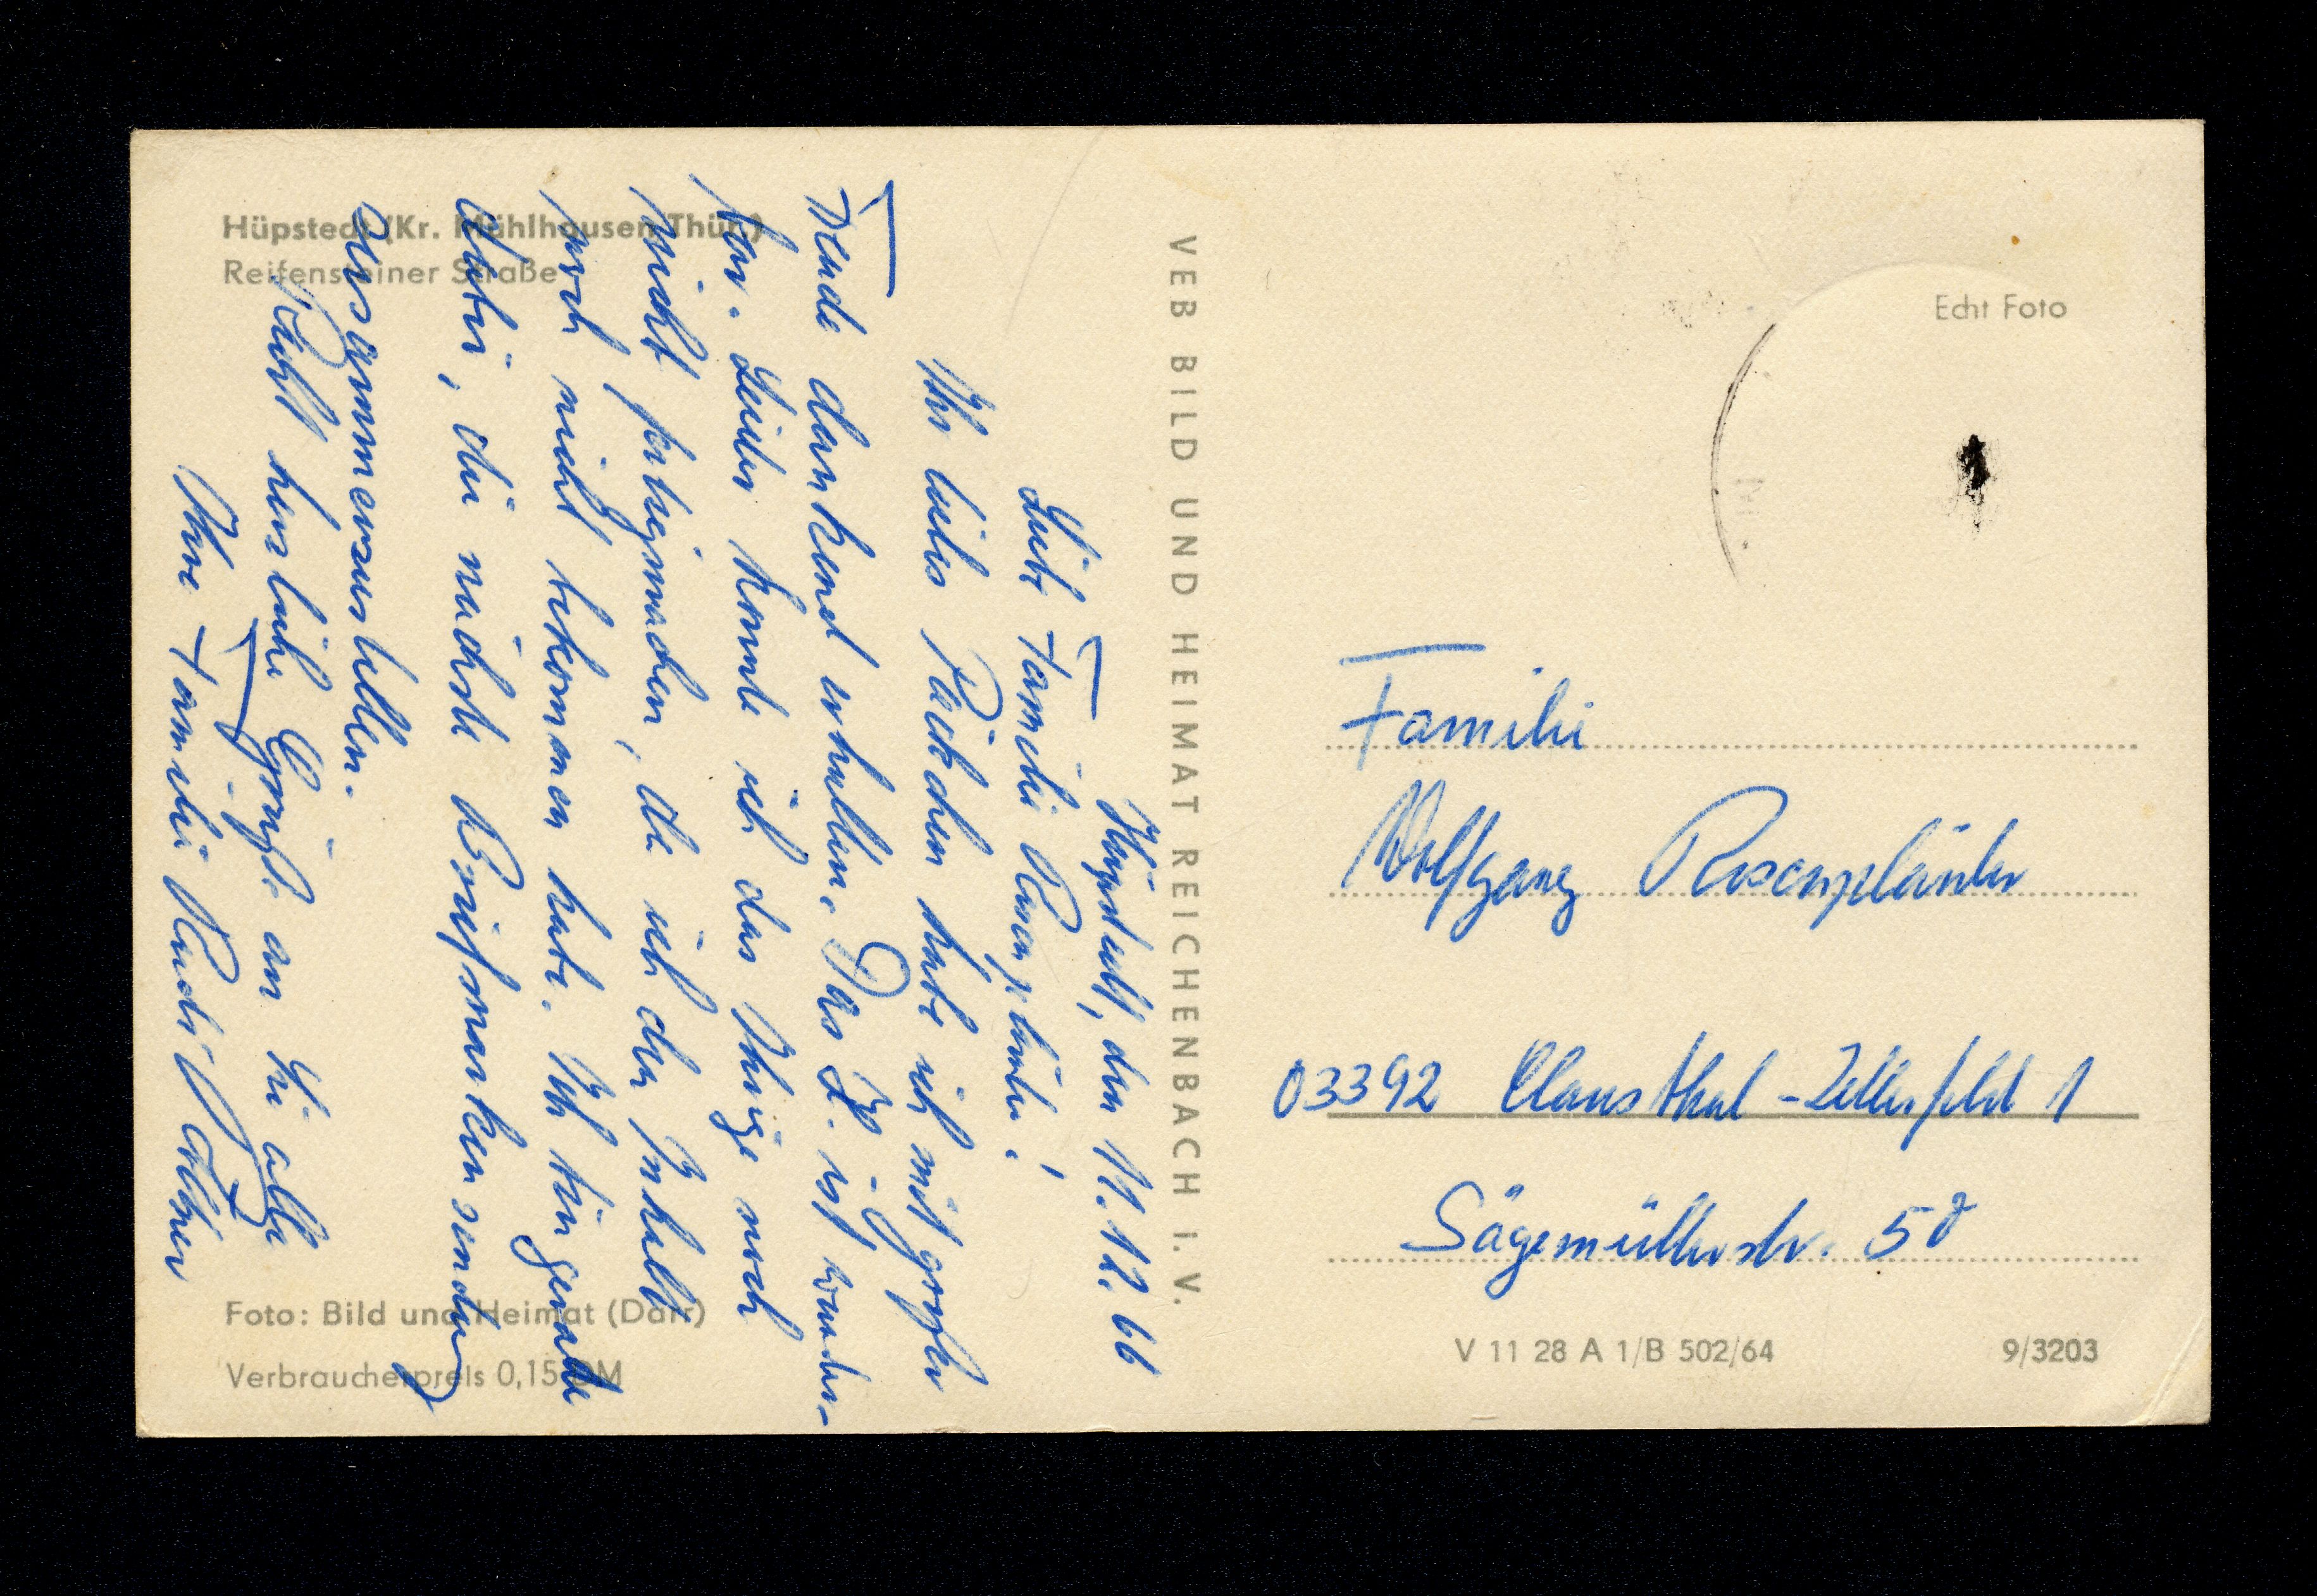 Hüpstedt (Kr. Mühlhausen Thür.)
Reifensteiner Straße
Hüpstedt, den 11.12.66
Liebe Familie Rosenplänter!
Ihr liebes Päckchen habe ich mit großer
Freude dankend erhalten. Das B. ist wunder-
bar. Leider konnte ich das Ihrige noch
nicht fertigmachen, da ich den Inhalt
noch nicht bekommen habe. Ich bin gerade
dabei, die nächste Briefmarkensendung
zusammenzustellen.
Recht herzliche Grüße an Sie alle
Ihre Familie Rudi
Foto: Bild und Heimat (Darr)
Verbraucherpreis 0,15 DM
VEB BILD UND HEIMAT REICHENBACH I. V.
Echt Foto
Familie
Wolfgang Rosenplänter
03392 Clausthal-Zellerfeld 1
Sägemüllerstr. 58
V 11 28 A 1/B 502/64
9/3203